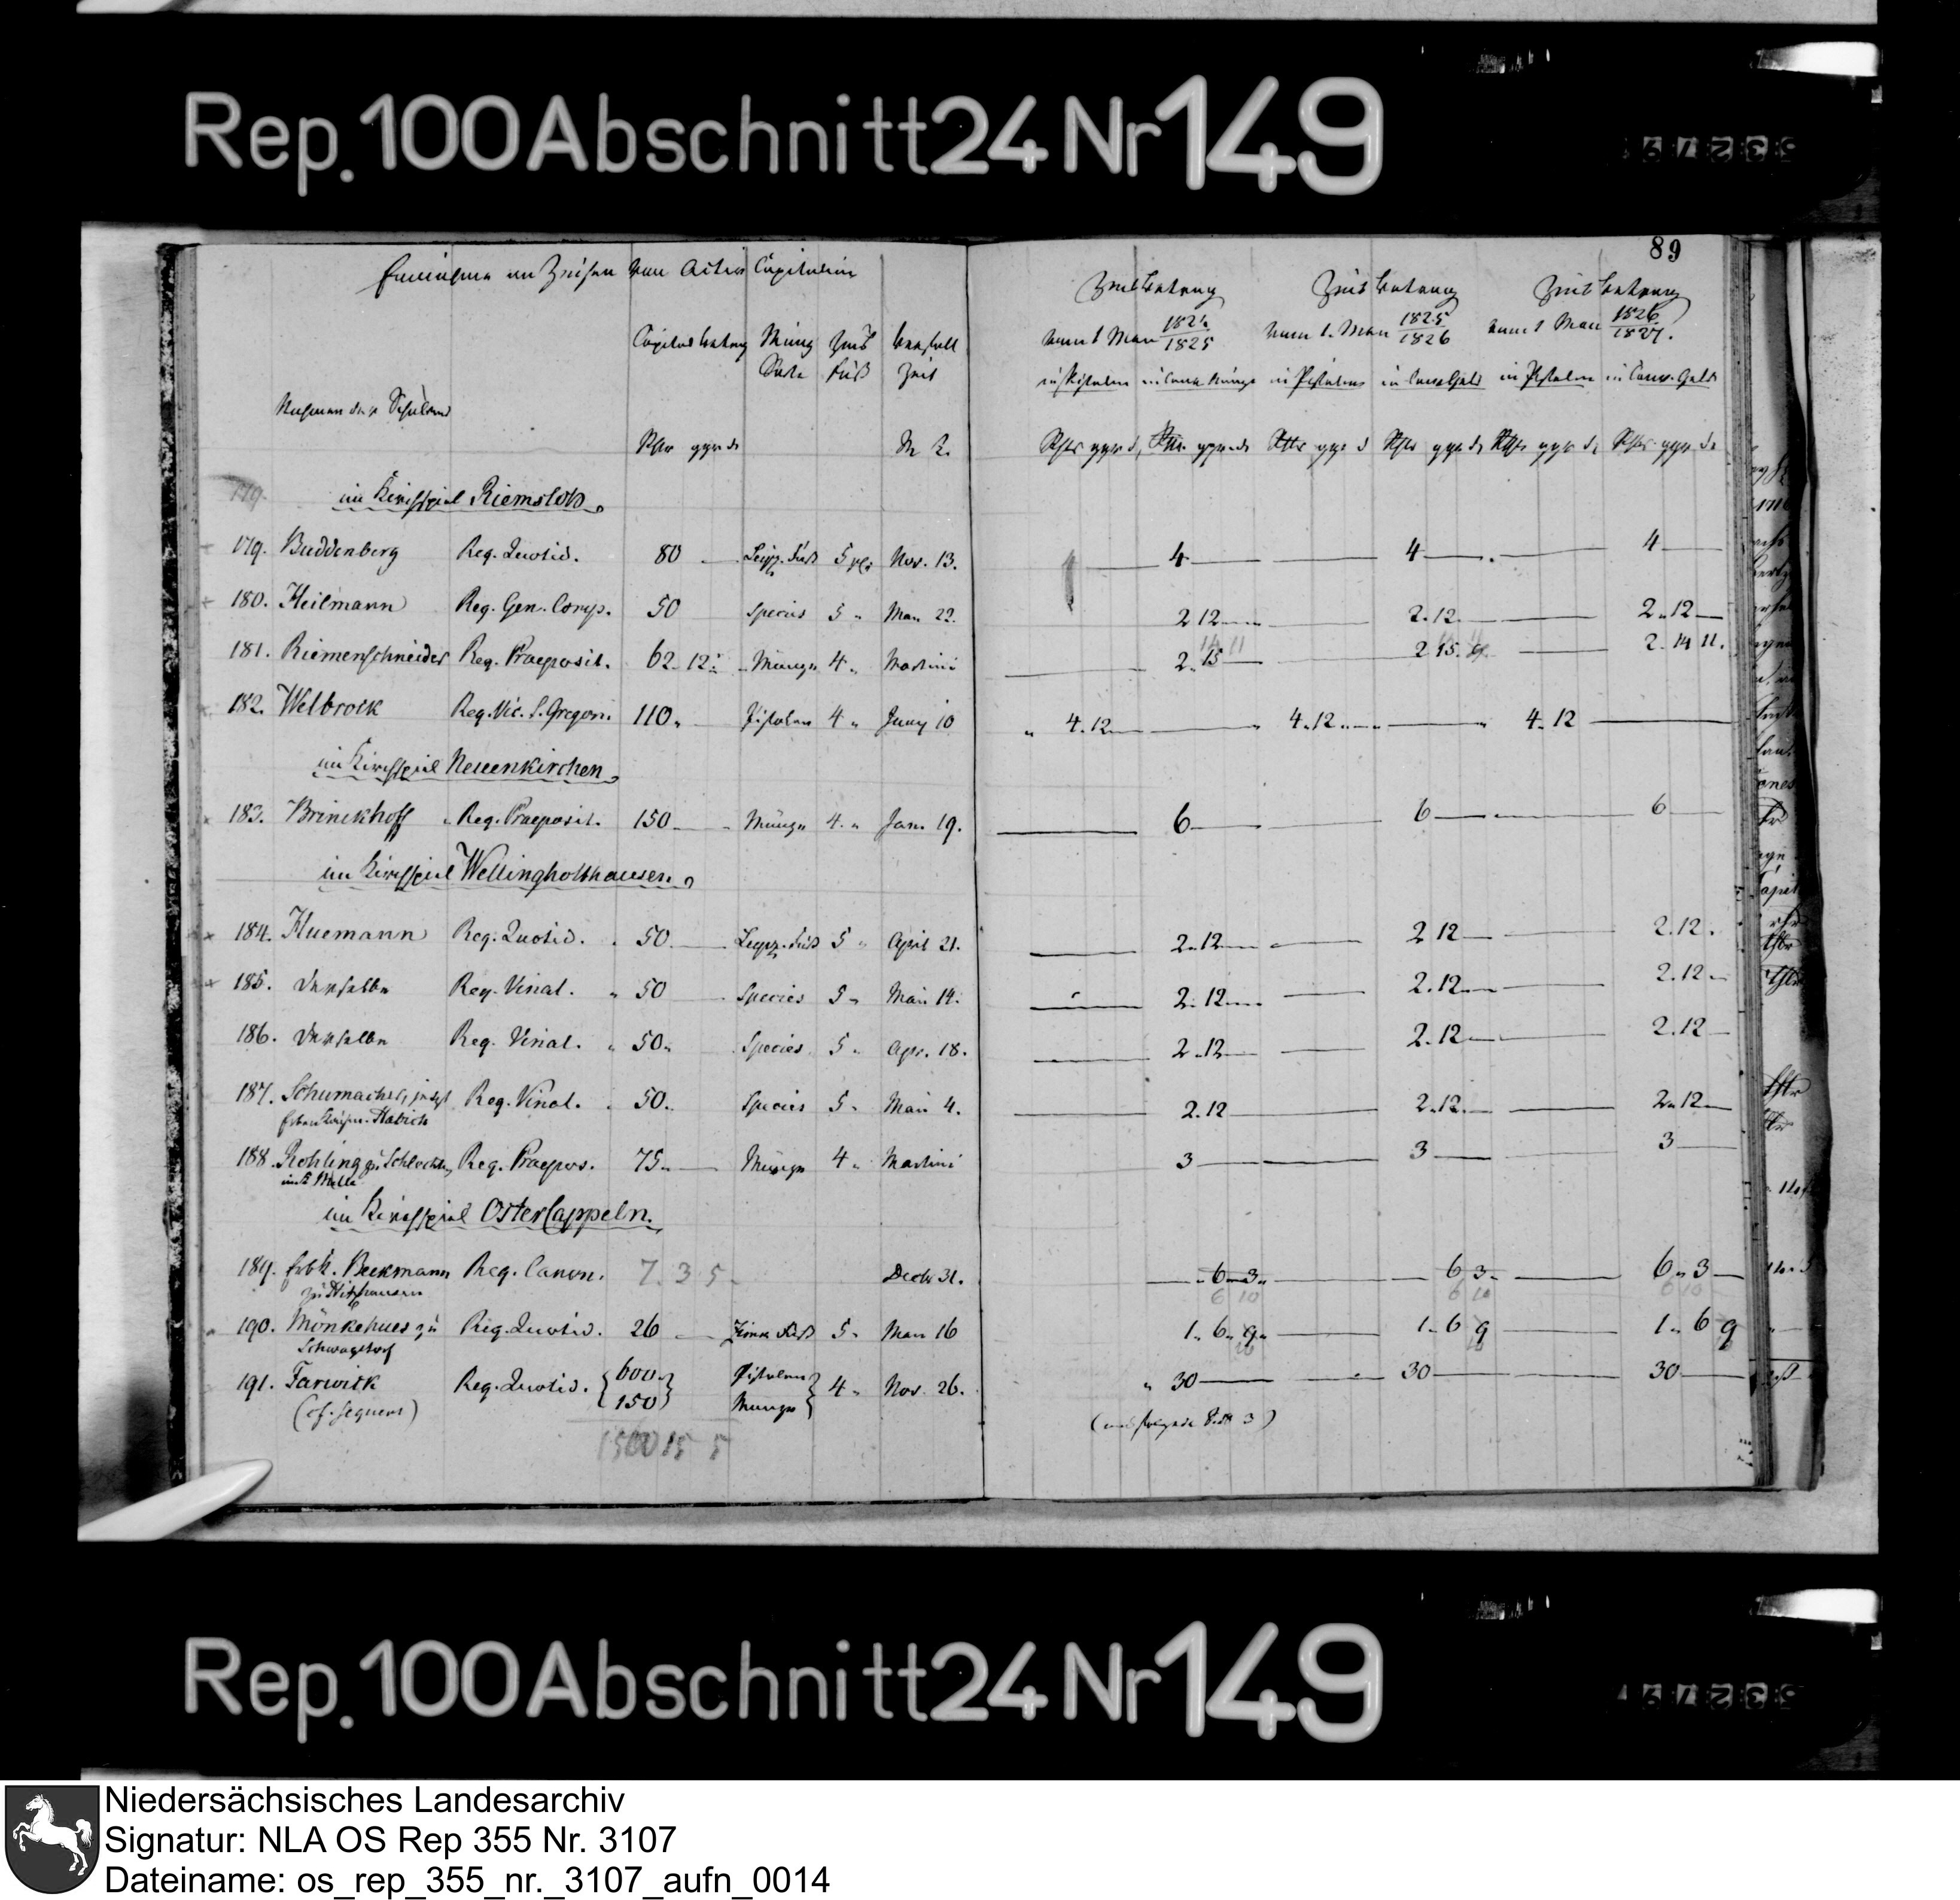 Rep. 100 Abschnitt 24 Nr 149
89
Einnahme an Zinsen von Activ Capitalien
Nahmen der Schuldner
Capital betrag Münz Zins Verfall
Sorte fuß Zeit
Rthr ggr d
Zins betrag Zins betrag Zins betrag
vom 1 May 1824/1825 vom 1. May 1825/1826 vom 1 May 1826/1827.
in Pistolen in Conv. Münze in Pistolen in Conv. Geld in Pistolen in Conv. Geld
Rthr ggr d Rthr ggr d Rthr ggr d Rthr ggr d Rthr ggr d Rthr ggr d
179.
im Kirchspiel Riemsloh
179. Buddenberg Reg. Quotid. 80 Leipz. Fuß 5 pC. Nov. 13. 4 4 4
180. Heilmann Reg. Gen. Corp. 50 Species 5 " May 22. 2 12 2. 12 2 " 12
181. Riemenschneider Reg. Praeposit. 62. 12 Münze 4 " Martini 2. 15 2 15. 2. 14 11.
14 11
182. Welbrock Reg. Vic. S. Gregori. 110 " Pistolen 4 " Juny 10 4. 12 4. 12 4. 12
im Kirchspiel Neuenkirchen
183. Brinckhoff Reg. Praeposit. 150 Münze 4. " Jan. 19. 6 6 6
im Kirchspiel Wellingholthausen
184. Huemann Reg. Quotid. 50 Leipz. Fuß 5 " April 21. 2. 12 2 12 2. 12.
185. derselbe Reg. Vinal. " 50 Species 5 " Mai 14. 2. 12 2. 12 2. 12
186. derselbe Reg. Vinal. " 50 " Species 5 " Apr. 18. 2. 12 2. 12 2. 12
187. Schumacher, jetzt Reg. Vinal. 50. Species 5 " Mai 4. 2. 12 2. 12 2 " 12
188. Rohling zu Schlochter, Reg. Praepos. 75. Münze 4 " Martini 3 3 3
im K Melle
im Kirchspiel OsterCappeln.
189. Erbk. Beckmann Reg. Canon. 7. 3. 5 Decbr 31. 6 3 6 3 6 " 3
zu Hitzhausen 6 10 6 10 6 10
190. Mönkehues zu Reg. Quotid. 26 5 " May 16 1. 6. 9 1. 6 9 1. 6 9
Schwagstorf
191. Farwick Reg. Quotid. 600. Pistolen 4 " Nov. 26. " 30 30 30
(cf. sequens) 150 Münze
1500 15 5
Rep. 100 Abschnitt 24 Nr 149
Niedersächsisches Landesarchiv
Signatur: NLA OS Rep 355 Nr. 3107
Dateiname: os_rep_355_nr._3107_aufn_0014